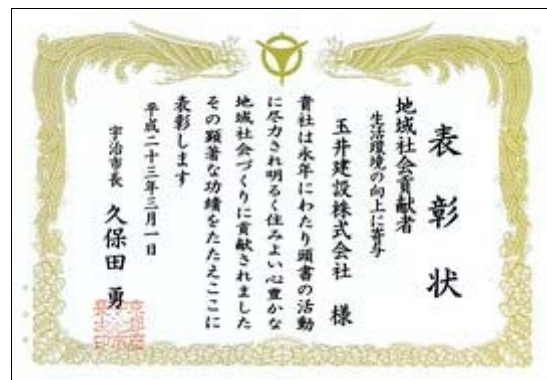 表彰状
地域社会貢献者
生活環境の向上に寄与
玉井建設株式会社 様
貴社は永年にわたり頭書の活動
に尽力され明るく住みよい心豊かな
地域社会づくりに貢献されました
その顕著な功績をたたえここに
表彰します
平成二十三年三月一日
宇治市長 久保田 勇